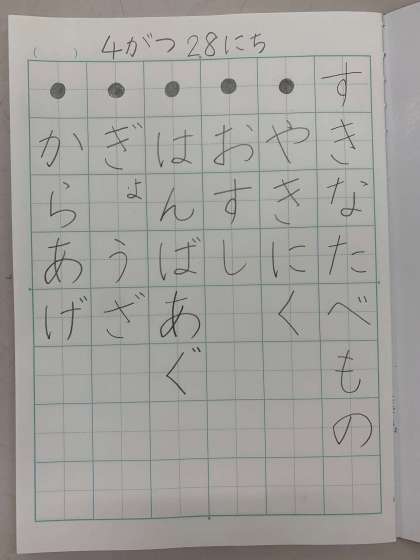 4がつ28にち
(　)
すきなたべもの
●やきにく
●おすし
●はんばあぐ
●ぎょうざ
●からあげ